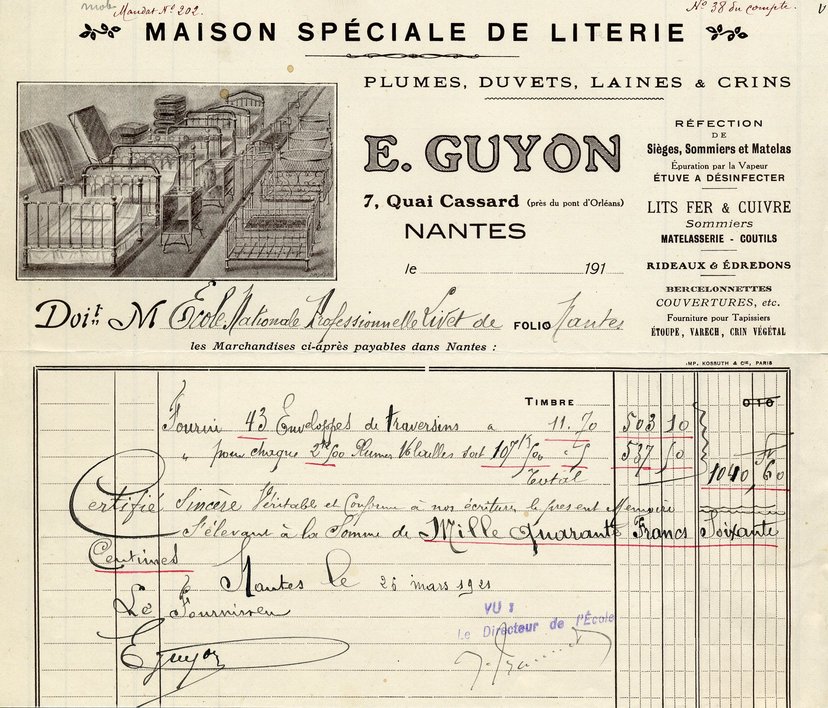 mob.
Mandat N° 202.
N° 38 du compte.
MAISON SPÉCIALE DE LITERIE
PLUMES, DUVETS, LAINES & CRINS
E. GUYON
7, Quai Cassard (près du pont d'Orléans)
NANTES
le 191
RÉFECTION
DE
Sièges, Sommiers et Matelas
Épuration par la Vapeur
ÉTUVE A DÉSINFECTER
LITS FER & CUIVRE
Sommiers
MATELASSERIE - COUTILS
RIDEAUX & ÉDREDONS
BERCELONNETTES
COUVERTURES, etc.
Fourniture pour Tapissiers
ÉTOUPE, VARECH, CRIN VÉGÉTAL
Doit M École Nationale Professionnelle Livet de FOLIO Nantes
les Marchandises ci-après payables dans Nantes :
IMP. KOSSUTH & Cie, PARIS
TIMBRE 010
Fourni 43 Enveloppes de traversins a 11.70 503 10
" pour chaque 2k500 Plumes Volailles soit 107k500 a 5 537 50
Total 1040 60
Certifié Sincère Véritable et Conforme à nos écritures le présent Mémoire
S'élevant à la Somme de Mille Quarante Francs Soixante
Centimes
Nantes le 26 mars 1921
Le Fournisseur
EGuyon
VU :
Le Directeur de l'École